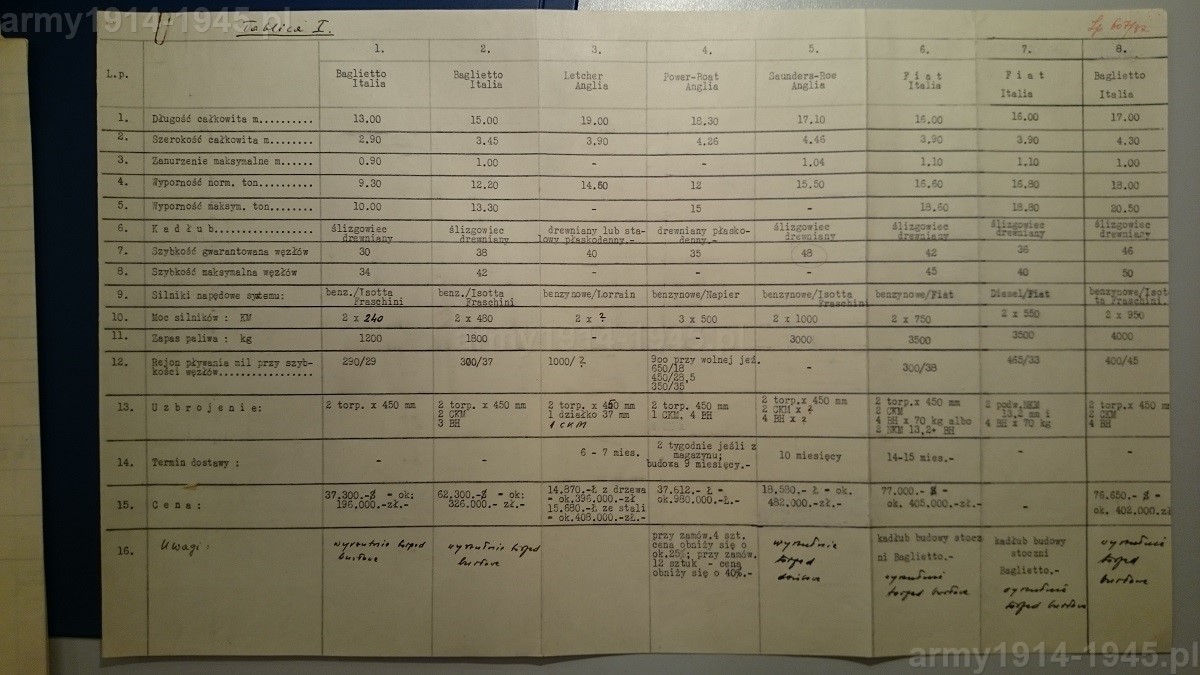 army1914-1945.pl
Tablica I.
1. 2. 3. 4. 5. 6. 7. 8.
L.p. Baglietto Baglietto Letcher Power-Boat Saunders-Roe Fiat Fiat Baglietto
Italia Italia Anglia Anglia Anglia Italia Italia Italia
1. Długość całkowita m.......... 13.00 15.00 19.00 18.30 17.10 16.00 16.00 17.00
2. Szerokość całkowita m........ 2.90 3.45 3.90 4.26 4.46 3.90 3.90 4.30
3. Zanurzenie maksymalne m...... 0.90 1.00 - - 1.04 1.10 1.10 1.00
4. Wyporność norm. ton.......... 9.30 12.20 14.50 12 15.50 16.60 16.80 18.00
5. Wyporność maksym. ton........ 10.00 13.30 - 15 - 18.60 18.80 20.50
6. K a d ł u b................. ślizgowiec ślizgowiec drewniany lub sta- drewniany płasko- ślizgowiec ślizgowiec ślizgowiec ślizgowiec
drewniany drewniany lowy płaskodenny.- denny.- drewniany drewniany drewniany drewniany
7. Szybkość gwarantowana węzłów 30 38 40 35 48 42 36 46
8. Szybkość maksymalna węzłów 34 42 - - - 45 40 50
9. Silniki napędowe systemu: benz./Isotta benz./Isotta benzynowe/Lorrain benzynowe/Napier benzynowe/Isotta benzynowe/Fiat Diesel/Fiat benzynowe/Isot-
Fraschini Fraschini Fraschini ta Fraschini.
10. Moc silników : KM 2 x 240 2 x 480 2 x ? 3 x 500 2 x 1000 2 x 750 2 x 550 2 x 950
11. Zapas paliwa : kg 1200 1800 - - 3000 3500 3500 4000
12. Rejon pływania mil przy szyb- 290/29 300/37 1000/? 9oo przy wolnej jeź. - 300/38 465/33 400/45
kości węzłów................ 650/18
450/28,5
350/35
13. U z b r o j e n i e: 2 torp. x 450 mm 2 torp. x 450 mm 2 torp. x 450 mm 2 torp. 450 mm 2 torp. x 450 mm 2 torp.x 450 mm 2 podw.NKM 2 torp.x 450 mm
2 CKM 1 działko 37 mm 1 CKM, 4 BH 2 CKM x ? 2 CKM 13,2 mm i 2 CKM
3 BH 1 CKM 4 BH x ? 4 BH x 70 kg albo 4 BH x 70 kg 4 BH
2 NKM 13,2+ BH
14. Termin dostawy : - - 6 - 7 mies. 2 tygodnie jeśli z 10 miesięcy 14-15 mies.- - -
magazynu;
budowa 9 miesięcy.-
15. C e n a : 37.300.-$ = ok: 62.300.-$ = ok: 14.870.-Ł z drzewa 37.612.- Ł = 18.580.- Ł = ok. 77.000.- $ = - 76.650.- $ =
196.000.-zł.- 326.000.- zł.- = ok.396.000.-zł ok.980.000.-Ł.- 482.000.-zł.- ok. 405.000.-zł.- ok. 402.000.zł
15.680.-Ł ze stali
= ok.408.000.-zł.-
16. Uwagi: wyrzutnie torped burtowe wyrzutnie torped burtowe przy zamów.4 szt. wyrzutnie torped kadłub budowy stocz kadłub budowy wyrzutnie torped burtowe
cena obniży się o ni Baglietto.- stoczni
ok.25%; przy zamów. wyrzutnie Baglietto.-
12 sztuk - cena torped burtowe wyrzutnie
obniży się o 40%.- torped burtowe
army1914-1945.pl
army1914-1945.pl